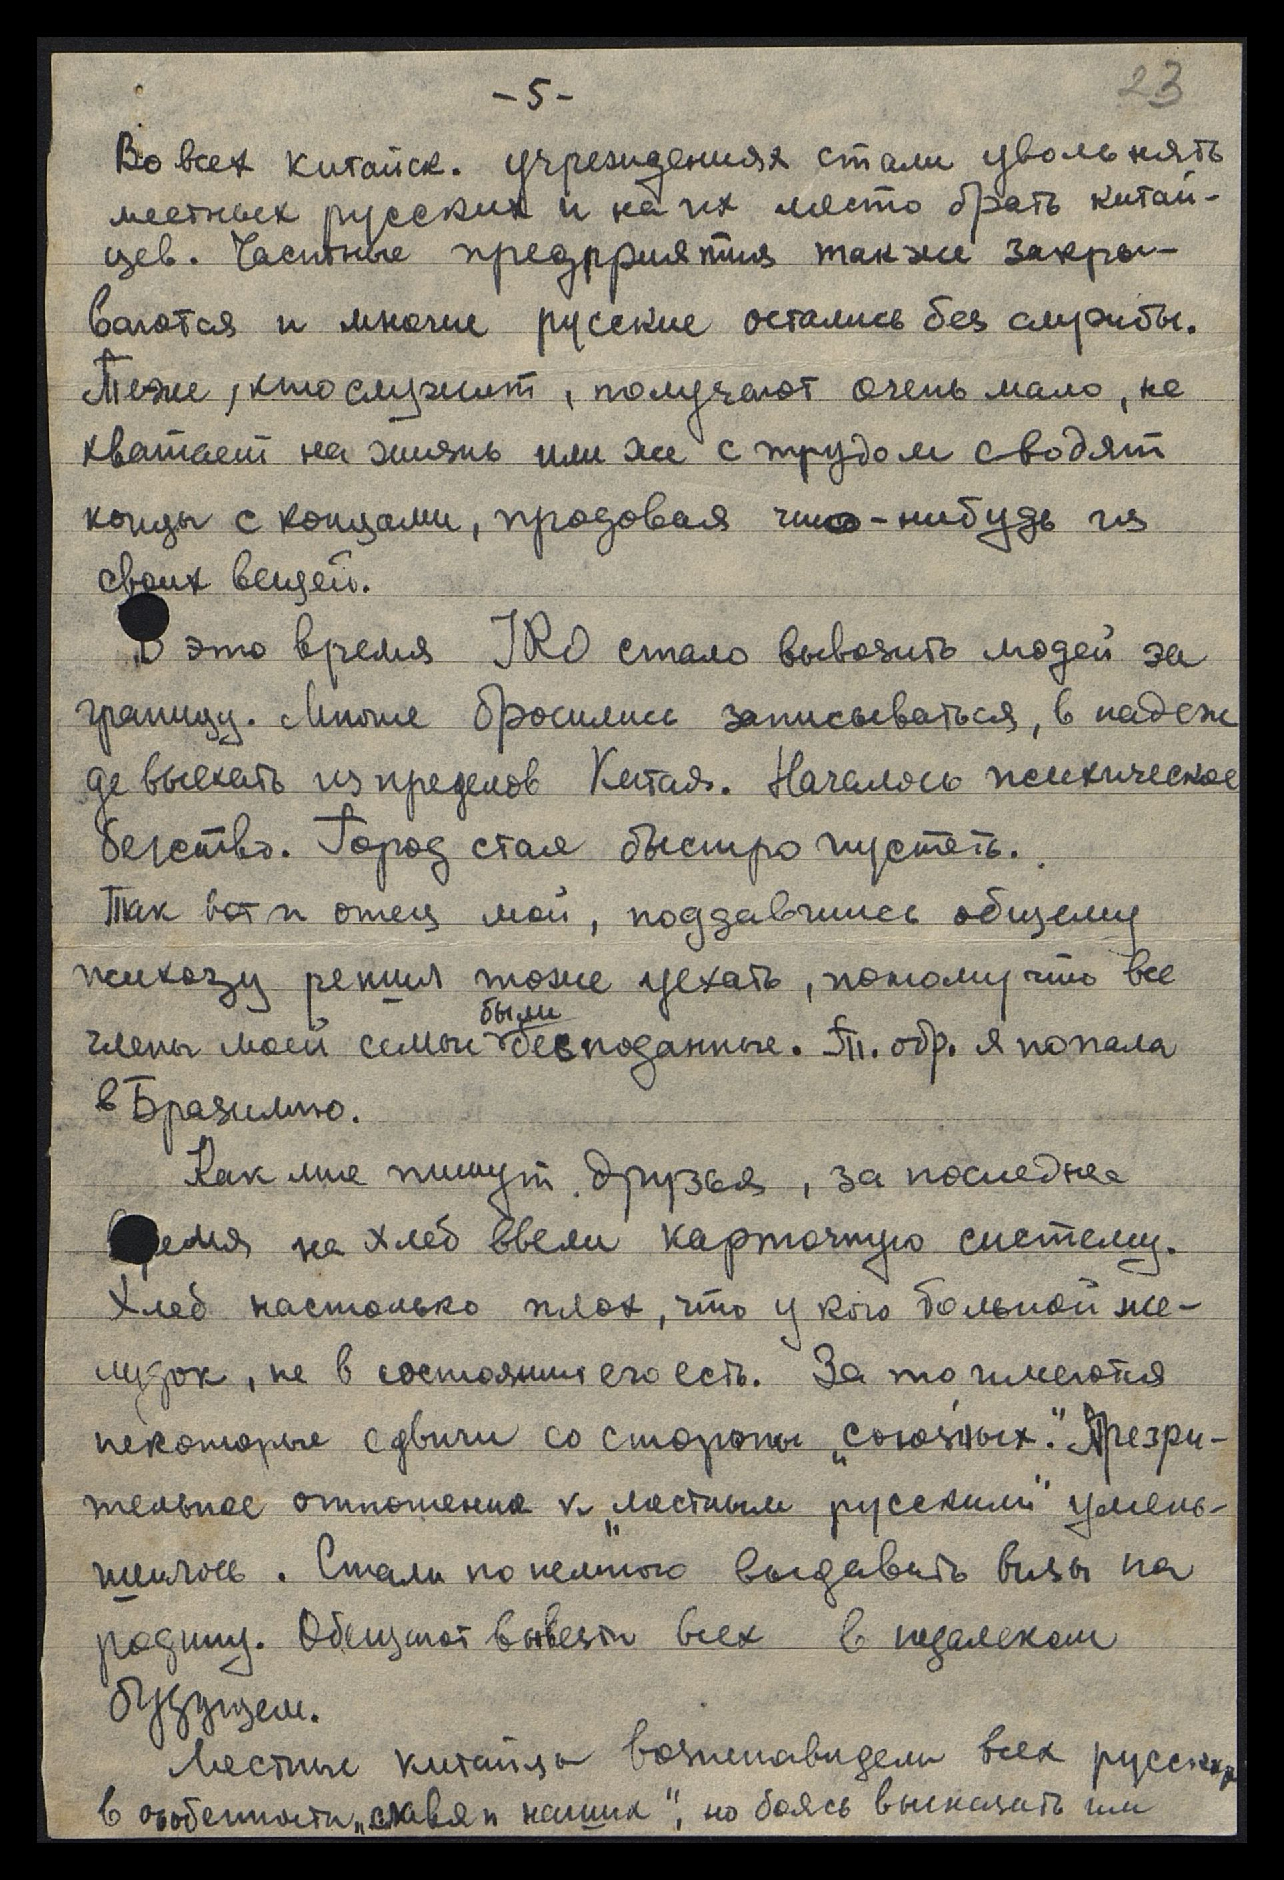 -5-
23
Во всех китайск. учреждениях стали увольнять
местных русских и на их место брать китай-
цев. Частные предприятия также закры-
ваются и многие русские остались без службы.
Те же, кто служит, получают очень мало, не
хватает на жизнь или же с трудом сводят
концы с концами, продовая что-нибудь из
своих вещей.
В это время IRO стало вывозить людей за
границу. Многие бросились записываться, в надеж
де выехать из пределов Китая. Началось психическое
бегство. Город стал быстро пустеть.
Так вот и отец мой, поддавшись общему
психозу решил тоже уехать, потому что все
были
члены моей семьи безподанные. Т. обр. я попала
в Бразилию.
Как мне пишут друзья, за последнее
время на хлеб ввели карточную систему.
Хлеб настолько плох, что у кого больной же-
лудок, не в состоянии его есть. За то имеются
некоторые сдвиги со стороны „союзных". Презри-
тельное отношение к „местным русским" умень-
шилось. Стали понемного выдавать визы на
родину. Обещают вывезти всех в недалеком
будущем.
Местные китайцы возненавидели всех русских,
в особенности „славян наших", но боясь высказать им